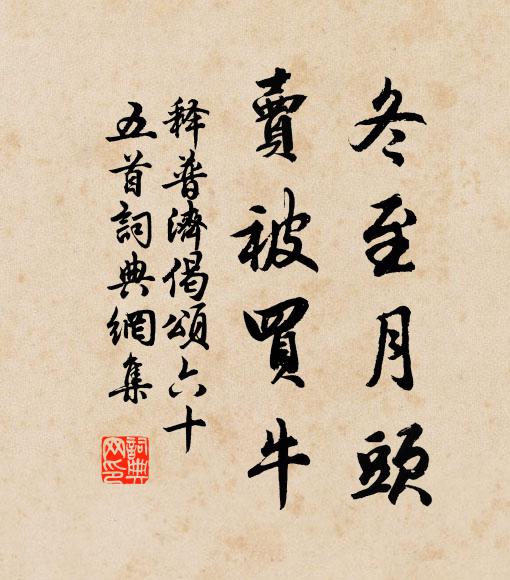 冬至月頭
賣被買牛
釋普濟偈頌六十
五首詞典網集
詞典
网印